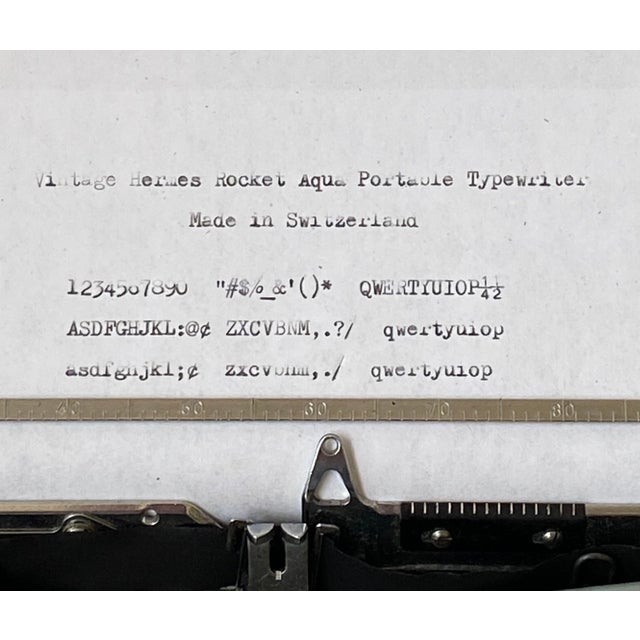 Vintage Hermes Rocket Aqua Portable Typewriter
Made in Switzerland
1234567890 "#$%_&'()* QWERTYUIOP¼½
ASDFGHJKL:@¢ ZXCVBNM,.?/ qwertyuiop
asdfghjkl;¢ zxcvbnm,./ qwertyuiop
40 50 60 70 80